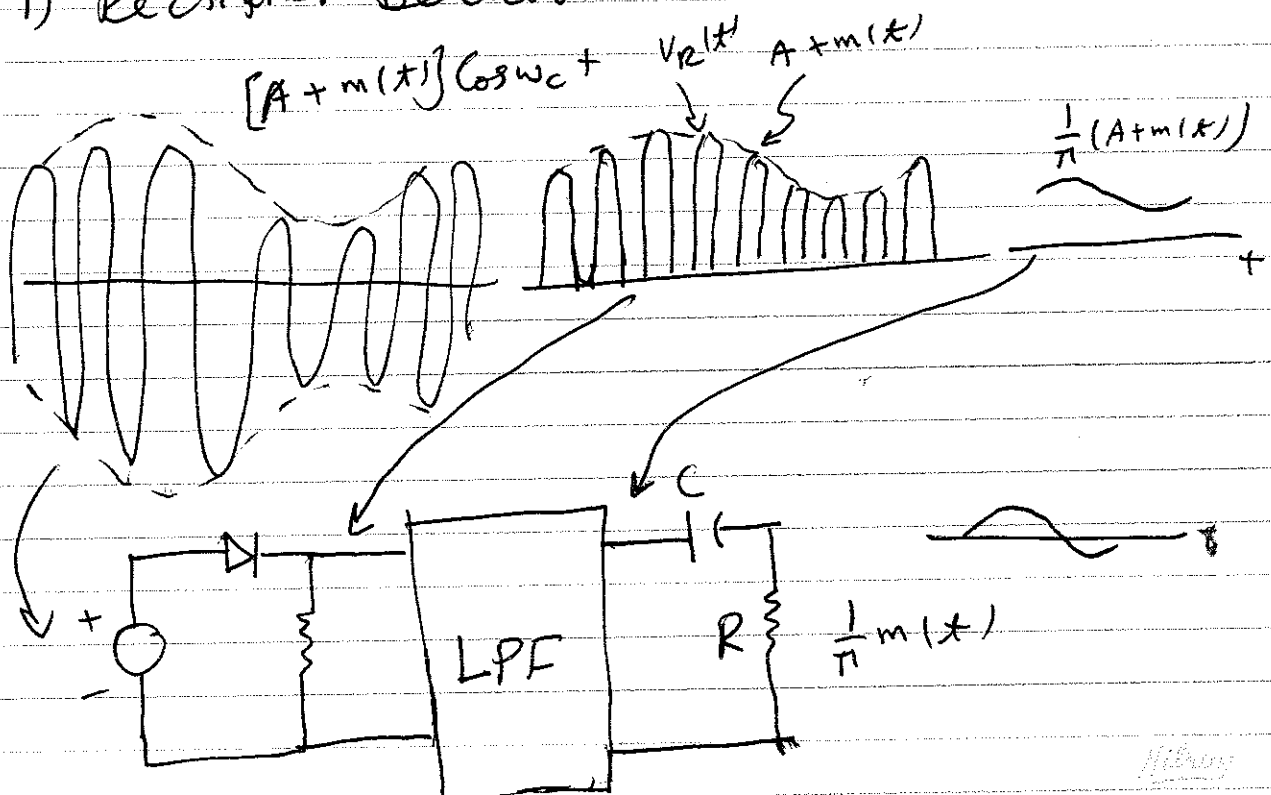 1) Rectifier Detector
[A + m(t)] Cos ωc t
VR(t) A + m(t)
1/π (A + m(t))
t
C
+
−
LPF
R
1/π m(t)
t